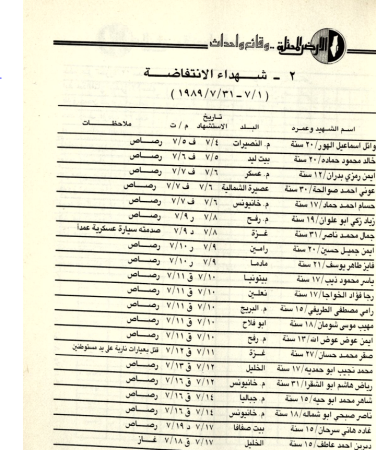 الأرض المحتلة - وقائع وأحداث
٢ - شهداء الانتفاضة
(٧/١ - ١٩٨٩/٧/٣١)
اسم الشهيد وعمره البلد تاريخ الاستشهاد م / ت ملاحظات
وائل اسماعيل الهور/٢٠ سنة م. النصيرات ٧/٤ ف ٧/٥ رصاص
خالد محمود حماده/٢٠ سنة بيت ليد ٧/٥ ف ٧/٦ رصاص
ايمن رمزي بدران/١٢ سنة م. عسكر ٧/٦ ف ٧/٧ رصاص
عوني احمد صوالحة/٣٠ سنة عصيرة الشمالية ٧/٦ ف ٧/٧ رصاص
حسام احمد حماد/١٧ سنة م. خانيونس ٧/٦ ف ٧/٧ رصاص
زياد زكي ابو علوان/١٩ سنة م. رفح ٧/٨ ر ٧/٩ رصاص
جمال محمد ناصر/٣١ سنة غزة ٧/٨ د ٧/٩ صدمته سيارة عسكرية عمداً
ايمن جميل حسين/٢٠ سنة رامين ٧/٩ ر ٧/١٠ رصاص
فايز طاهر يوسف/٢١ سنة مادما ٧/٩ ر ٧/١٠ رصاص
ياسر محمود ذيب/١٧ سنة بيتونيا ٧/١٠ ق ٧/١١ رصاص
رجا فؤاد الخواجا/١٧ سنة نعلين ٧/١٠ ق ٧/١١ رصاص
رامي مصطفى الطريفي/١٥ سنة م. البريج ٧/١٠ ق ٧/١١ رصاص
مهيب موسى شومان/١٨ سنة ابو فلاح ٧/١٠ ق ٧/١١ رصاص
ايمن عوض عوض الله/١٣ سنة م. رفح ٧/١٠ ق ٧/١١ رصاص
صقر محمد حسان/٢٧ سنة غزة ٧/١١ ق ٧/١٢ قتل بعيارات نارية على يد مستوطنين
محمد نجيب ابو حمديه/١٧ سنة الخليل ٧/١٢ ق ٧/١٣ رصاص
رياض هاشم ابو الشقرا/٣١ سنة م. خانيونس ٧/١٤ ق ٧/١٦ رصاص
شاهر محمد ابو حيه/١٥ سنة م. جباليا ٧/١٤ ق ٧/١٦ رصاص
ناصر صبحي ابو شماله/١٨ سنة م. خانيونس ٧/١٤ ق ٧/١٦ رصاص
غاده هاني سرحان/١٥ سنة بيت صفافا ٧/١٧ د ٧/١٩ رصاص
احمد عاطف/١٥ سنة الخليل ٧/١٧ ق ٧/١٨ غاز